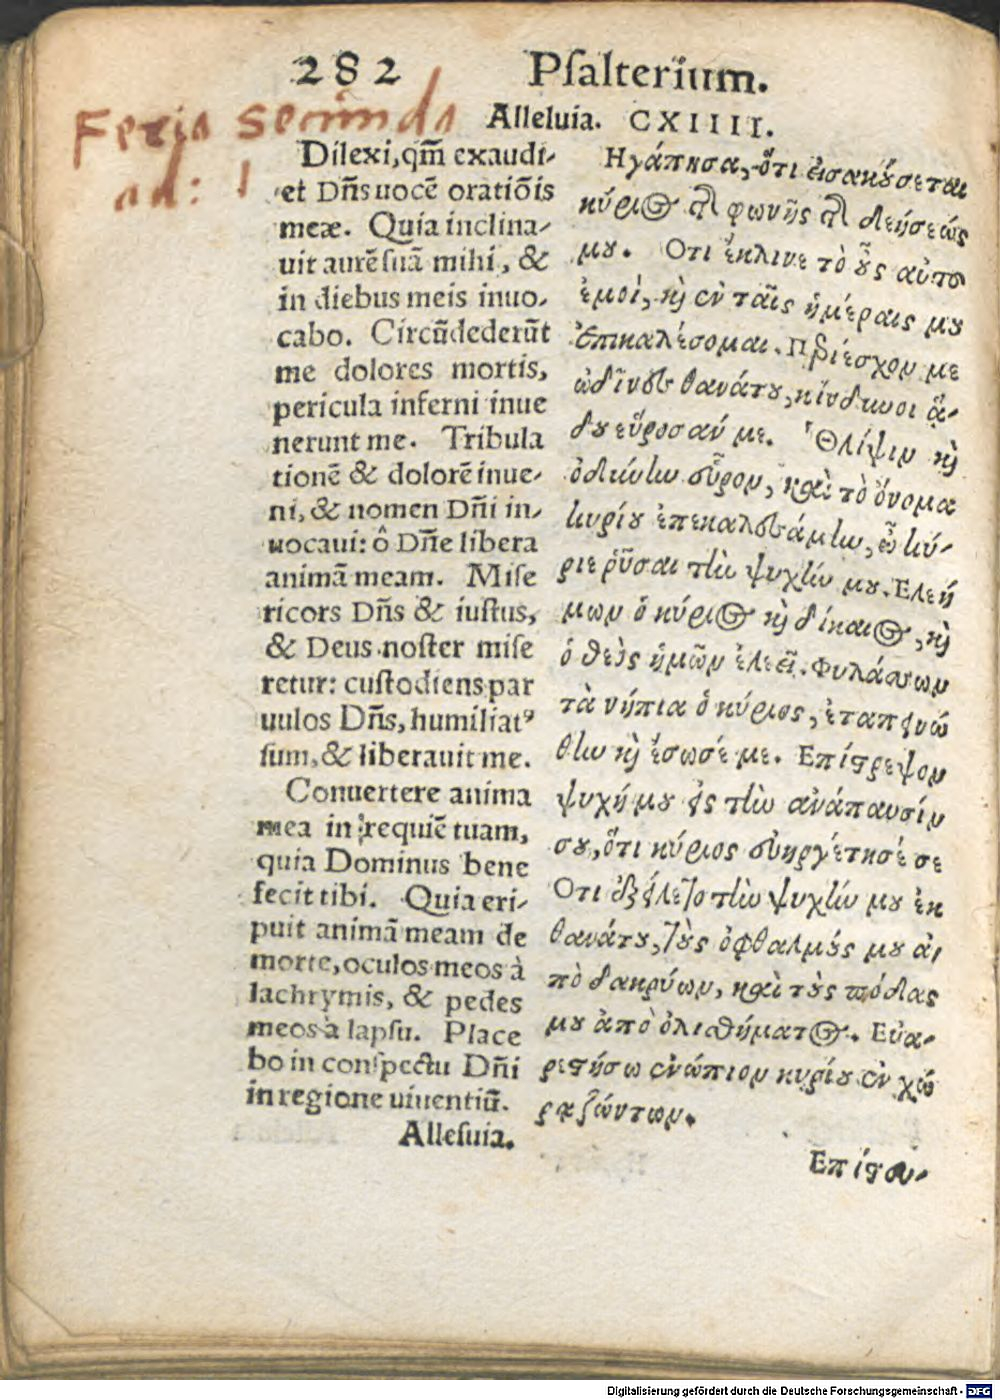 282 Pſalterium.
Feria secunda
ad: 1
Alleluia. CXIIII.
Dilexi, qm̃ exaudi-
et Dñs uocẽ oratiõis
meæ. Quia inclina-
uit aurẽ ſuã mihi, &
in diebus meis inuo.
cabo. Circũdederũt
me dolores mortis,
pericula inferni inue
nerunt me. Tribula
tionẽ & dolorẽ inue-
ni, & nomen Dñi in-
uocaui: ô Dñe libera
animã meam. Miſe
ricors Dñs & iuſtus,
& Deus noſter miſe
retur: cuſtodiens par
uulos Dñs, humiliatꝰ
ſum, & liberauit me.
Conuertere anima
mea in requiẽ tuam,
quia Dominus bene
fecit tibi. Quia eri-
puit animã meam de
morte, oculos meos à
lachrymis, & pedes
meos à lapſu. Place
bo in conſpectu Dñi
in regione uiuentiũ.
Alleluia.
Ηγάπησα, ὅτι εἰσακούσεται
κύριος τῆς φωνῆς τῆς δεήσεώς
μου. Οτι ἔκλινε τὸ οὖς αὐτοῦ
ἐμοὶ, καὶ ἐν ταῖς ἡμέραις μου
ἐπικαλέσομαι. Περιέσχον με
ὠδῖνες θανάτου, κίνδυνοι ἅ-
δου εὕροσαν με. Θλίψιν καὶ
ὀδύνην εὗρον, καὶ τὸ ὄνομα
κυρίου ἐπεκαλεσάμην, ὦ κύ-
ριε ῥῦσαι τὴν ψυχήν μου. Ελεή
μων ὁ κύριος καὶ δίκαιος, καὶ
ὁ θεὸς ἡμῶν ἐλεεῖ. Φυλάσσων
τὰ νήπια ὁ κύριος, ἐταπεινώ
θην καὶ ἔσωσέ με. Επίστρεψον
ψυχή μου εἰς τὴν ἀνάπαυσίν
σου, ὅτι κύριος εὐηργέτησέ σε
Οτι ἐξείλετο τὴν ψυχήν μου ἐκ
θανάτου, τοὺς ὀφθαλμούς μου ἀ-
πὸ δακρύων, καὶ τοὺς πόδας
μου ἀπὸ ὀλισθήματος. Εὐα-
ρεστήσω ἐνώπιον κυρίου ἐν χώ
ρᾳ ζώντων.
Επίστευ-
Digitalisierung gefördert durch die Deutsche Forschungsgemeinschaft - DFG